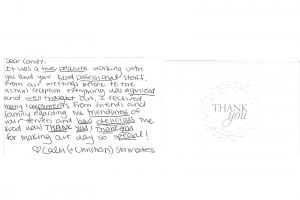 Dear Candy,
It was a true pleasure working with
you and your kind professional staff.
From our meetings before to the
actual reception everything was organized
and well thought out. I received
many compliments from friends and
family regarding the friendliness of
your servers and how delicious the
food was! THANK YOU! thank you
for making our day so special!
♡ Calen (+ Christian)
THANK
you